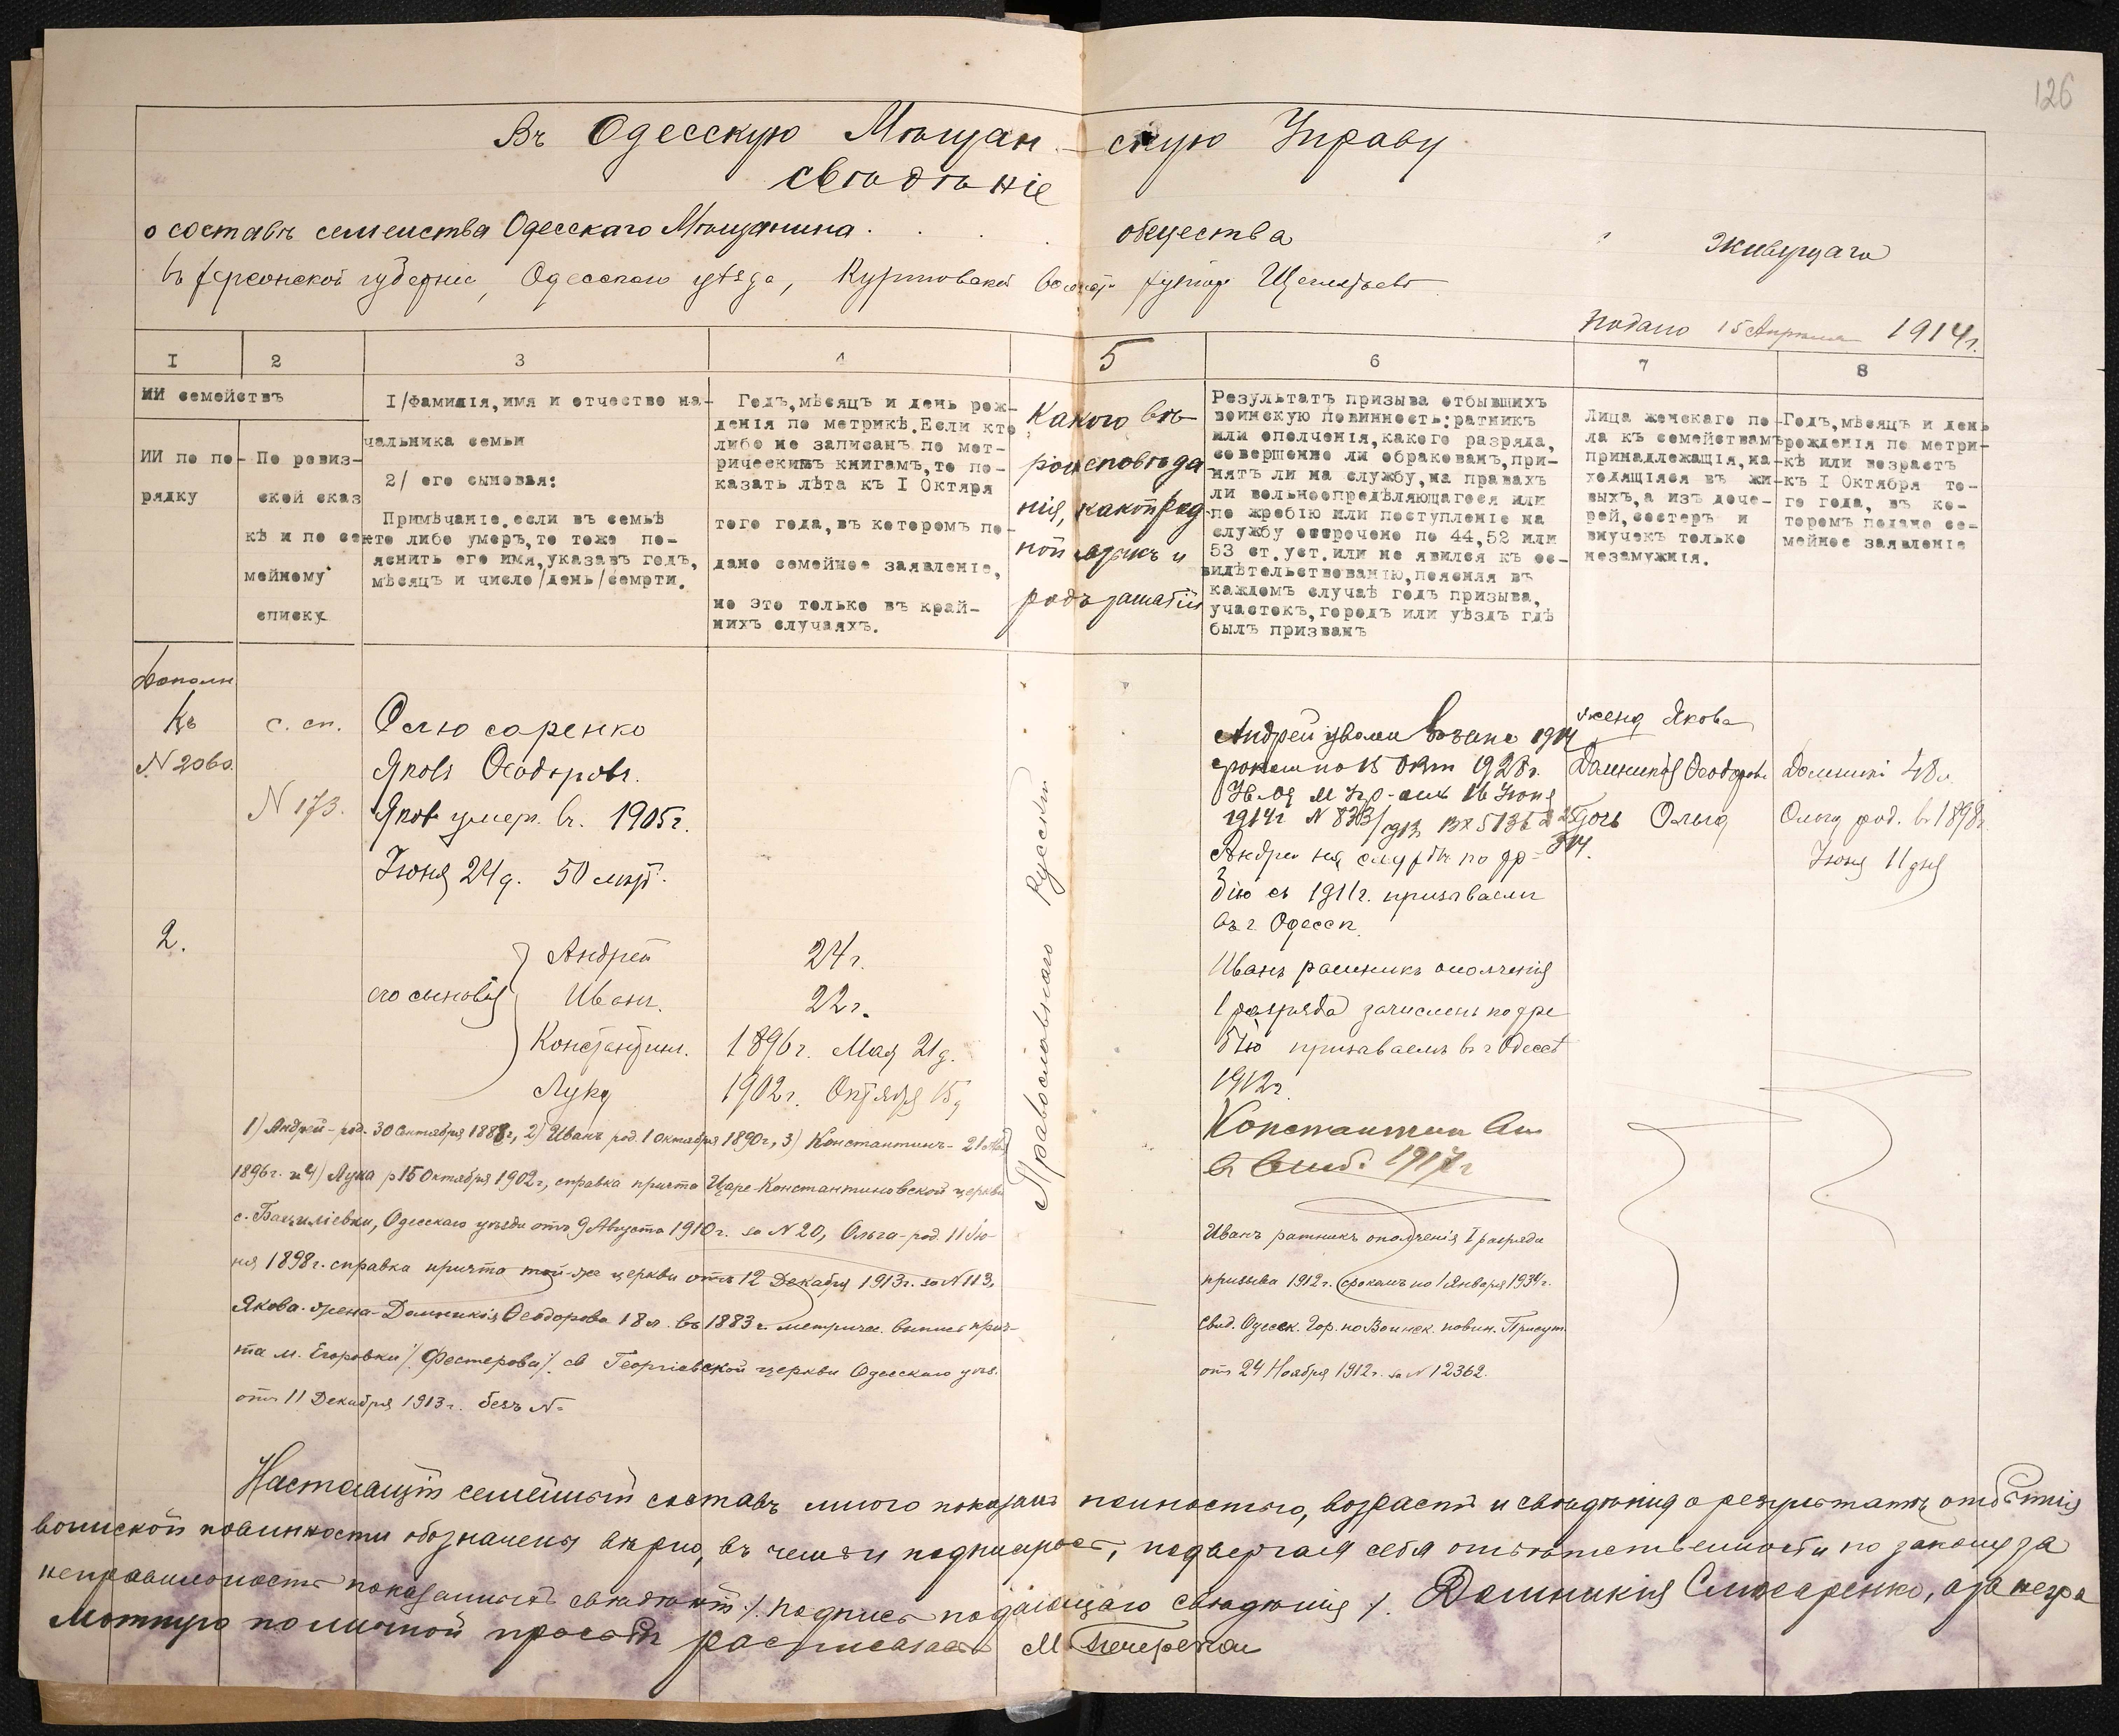 126
Въ Одесскую Мѣщанскую Управу
свѣдѣніе
о составѣ семейства Одесскаго Мѣщанина . . . . общества живущаго
въ Херсонской губерніи, Одесскаго уѣзда, Куртовской хуторъ
Подано 15 Апрѣля 1914 г.
I 2 3 4 5 6 7 8
ИИ семействъ
ИИ по по-
рядку
По ревиз-
ской сказ
кѣ и по се
мейному
списку
I/фамилія, имя и отчество на-
чальника семьи
2/ его сыновья:
Примѣчаніе. если въ семьѣ
кто либо умеръ, то тоже по-
яснить его имя, указавъ годъ,
мѣсяцъ и число/день/смерти.
Годъ, мѣсяцъ и день рож-
денія по метрикѣ. Если кто
либо не записанъ по мет-
рическимъ книгамъ, то по-
казать лѣта къ I Октяря
того года, въ которомъ по-
дано семейное заявленіе,
но это только въ край-
нихъ случаяхъ.
Какого вѣ-
роисповѣда
нія, какой
родъ занятій
Результатъ призыва отбывшихъ
воинскую повинность: ратникъ
или ополченія, какого разряда,
совершенно ли обракованъ, при-
нятъ ли на службу, на правахъ
ли вольноопредѣляющагося или
по жребію или поступленіе на
службу отсрочено по 44, 52 или
53 ст. уст. или не явился къ ос-
видѣтельствованію, поясняя въ
каждомъ случаѣ годъ призыва,
участокъ, городъ или уѣздъ гдѣ
былъ призванъ
Лица женскаго по-
ла къ семействамъ
принадлежащія, на-
ходящіяся въ жи-
выхъ, а изъ доче-
рей, сестеръ и
внучекъ только
незамужнія.
Годъ, мѣсяцъ и день
рожденія по метри-
кѣ или возрастъ
къ I Октября то-
го года, въ ко-
торомъ подано се-
мейное заявленіе
Дополн
къ
N 2060.
с. сп.
N 173.
Слюсаренко
Яковъ Ѳеодоровъ.
Яковъ умеръ въ 1905 г.
Іюня 24 д. 50 лѣтъ.
2.
его сыновья
Андрей 24 г.
Иванъ. 22 г.
Константинъ. 1896 г. Мая 21 д.
Лука 1902 г. Октября 15 д
Православнаго Русскій
Андрей 1914
срокомъ по 15 Окт 1928 г.
16 Іюня
1914 г N 833
Андрей на службѣ по жре-
бію съ 1911 г. призываемъ
въ г Одесск.
Иванъ ратникъ ополченія
1 разряда зачисленъ по жре
бію призываемъ въ г Одессѣ
1912 г.
Константин
1917 г
жена Якова
Домникія Ѳеодорова Домникіи 48 л.
дочь Ольга Ольга род. въ 1898 г
Іюня 11 дня
1) Андрей - род. 30 Сентября 1888 г, 2) Иванъ род. 1 октября 1890 г, 3) Константинъ - 21 Мая
1896 г. и 4) Лука р 15 Октября 1902 г, справка причта Царе-Константиновской церкви
с. Васильевки, Одесскаго уѣзда отъ 9 Августа 1910 г. за N 20, Ольга - род. 11 Ію-
ня 1898 г. справка причта той-же церкви отъ 12 Декабря 1913 г. за N 113,
Якова. жена - Домникія Ѳеодорова 18 л. въ 1883 г. метричес. выпись прич-
та м. Егоровки /. Фестерова /. св Георгіевской церкви Одесскаго уѣз.
отъ 11 Декабря 1913 г. безъ N-
Иванъ ратникъ ополченія I разряда
призыва 1912 г. срокомъ по 1 Января 1934 г.
Свид. Одесск. Гор. по Воинск. повин. Присут.
отъ 24 Ноября 1912 г. за N 12362.
Настоящій семейный составъ мною показанъ полностью, возрастъ и свѣдѣнія о результатѣ отбытія
воинской повинности обозначены вѣрно, въ чемъ и подписуюсь, подвергая себя отвѣтственности по закону за
неправильность показанныхъ свѣдѣній /. подпись подающаго свѣдѣнія /. Домникія Слюсаренко, а за негра
мотную по личной просьбѣ росписался М